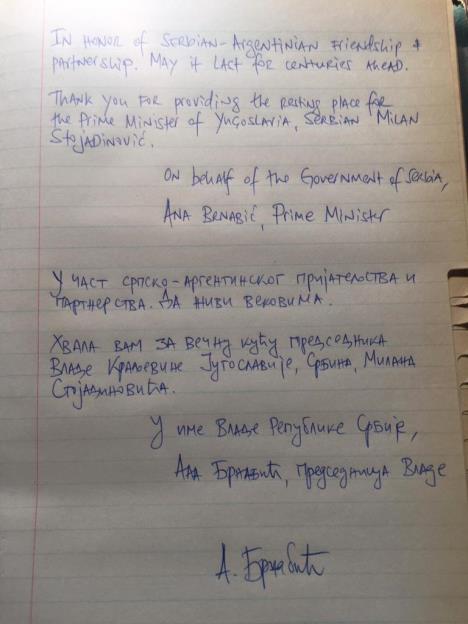 IN HONOR of SERBIAN-ARGENTINIAN FRIENDSHIP &
PARTNERSHIP. MAY IT LAST FOR CENTURIES AHEAD.
THANK YOU FOR PROVIDING the RESTING PLACE for
the PRIME MINISTER OF YUGOSLAVIA, SERBIAN MILAN
STOJADINOVIĆ.
ON behalf of the GOVERNMENT of SERBIA,
ANA BRNABIĆ, PRIME MINISTER
У ЧАСТ СРПСКО-АРГЕНТИНСКОГ ПРИЈАТЕЉСТВА И
ПАРТНЕРСТВА. ДА ЖИВИ ВЕКОВИМА.
ХВАЛА ВАМ ЗА ВЕЧНУ КУЋУ ПРЕДСЕДНИКА
ВЛАДЕ КРАЉЕВИНЕ ЈУГОСЛАВИЈЕ, СРБИНА, МИЛАНА
СТОЈАДИНОВИЋА.
У ИМЕ ВЛАДЕ РЕПУБЛИКЕ СРБИЈЕ,
АНА БРНАБИЋ, ПРЕДСЕДНИЦА ВЛАДЕ
А. Брнабић